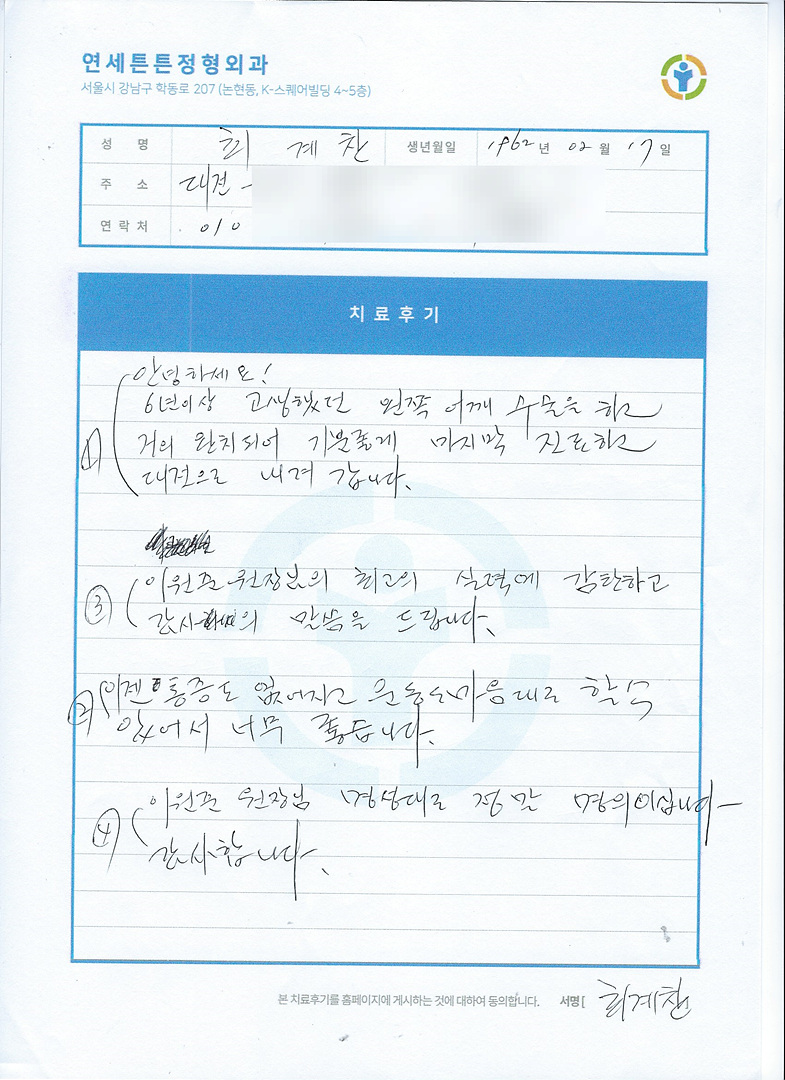 연세튼튼정형외과
서울시 강남구 학동로 207 (논현동, K-스퀘어빌딩 4~5층)
성 명 최 계 찬 생년월일 1962년 02월 17일
주 소 대전 -
연락처 010
치료후기
① 안녕하세요!
6년이상 고생했던 왼쪽 어깨 수술을 하고
거의 완치되어 기분좋게 마지막 진료하고
대전으로 내려 갑니다.
③ 이원준 원장님의 최고의 실력에 감탄하고
감사의 말씀을 드립니다.
② 이젠 통증도 없어지고 운동도 마음대로 할 수
있어서 너무 좋습니다.
④ 이원준 원장님 명성대로 정말 명의이십니다
감사합니다.
본 치료후기를 홈페이지에 게시하는 것에 대하여 동의합니다. 서명 [ 최계찬